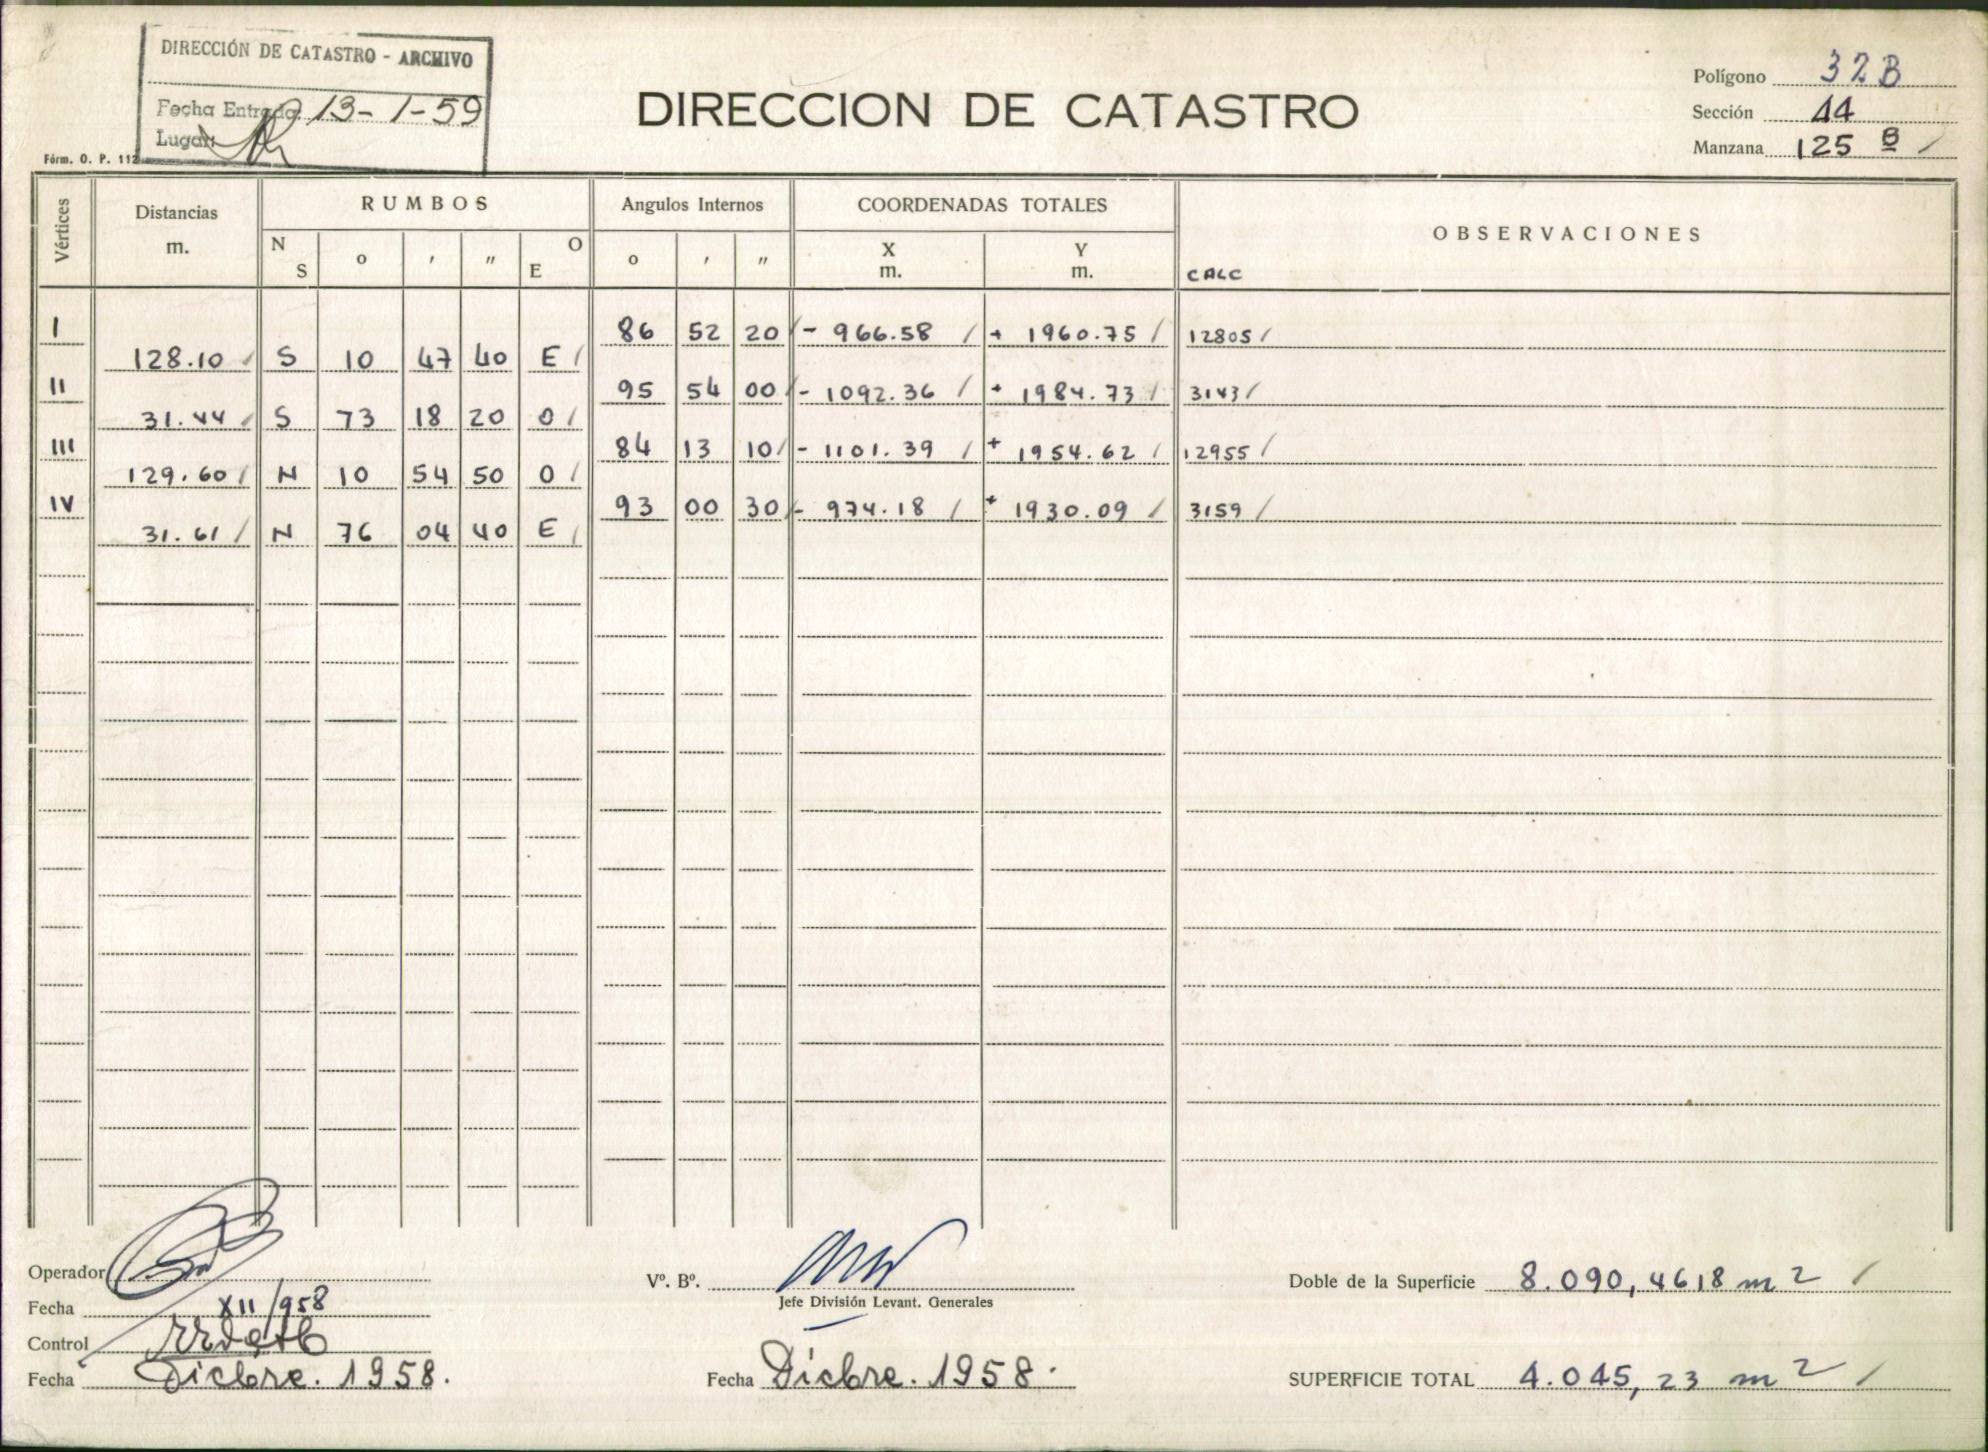 DIRECCIÓN DE CATASTRO - ARCHIVO
Fecha Entrada 13-1-59
Lugar
Fórm. O. P. 112
DIRECCION DE CATASTRO
Polígono 32B
Sección 44
Manzana 125 B /
Vértices Distancias m. RUMBOS Angulos Internos COORDENADAS TOTALES OBSERVACIONES
N S o ' " O E o ' " X m. Y m. CALC
I 86 52 20 / - 966.58 / + 1960.75 / 12805 /
128.10 / S 10 47 40 E /
II 95 54 00 / - 1092.36 / + 1984.73 / 3143 /
31.44 / S 73 18 20 O /
III 84 13 10 / - 1101.39 / + 1954.62 / 12955 /
129.60 / N 10 54 50 O /
IV 93 00 30 / - 974.18 / + 1930.09 / 3159 /
31.61 / N 76 04 40 E /
Operador
Fecha XII/958
Control
Fecha Dicbre. 1958.
Vº. Bº.
Jefe División Levant. Generales
Fecha Dicbre. 1958.
Doble de la Superficie 8.090,4618 m2 /
SUPERFICIE TOTAL 4.045,23 m2 /